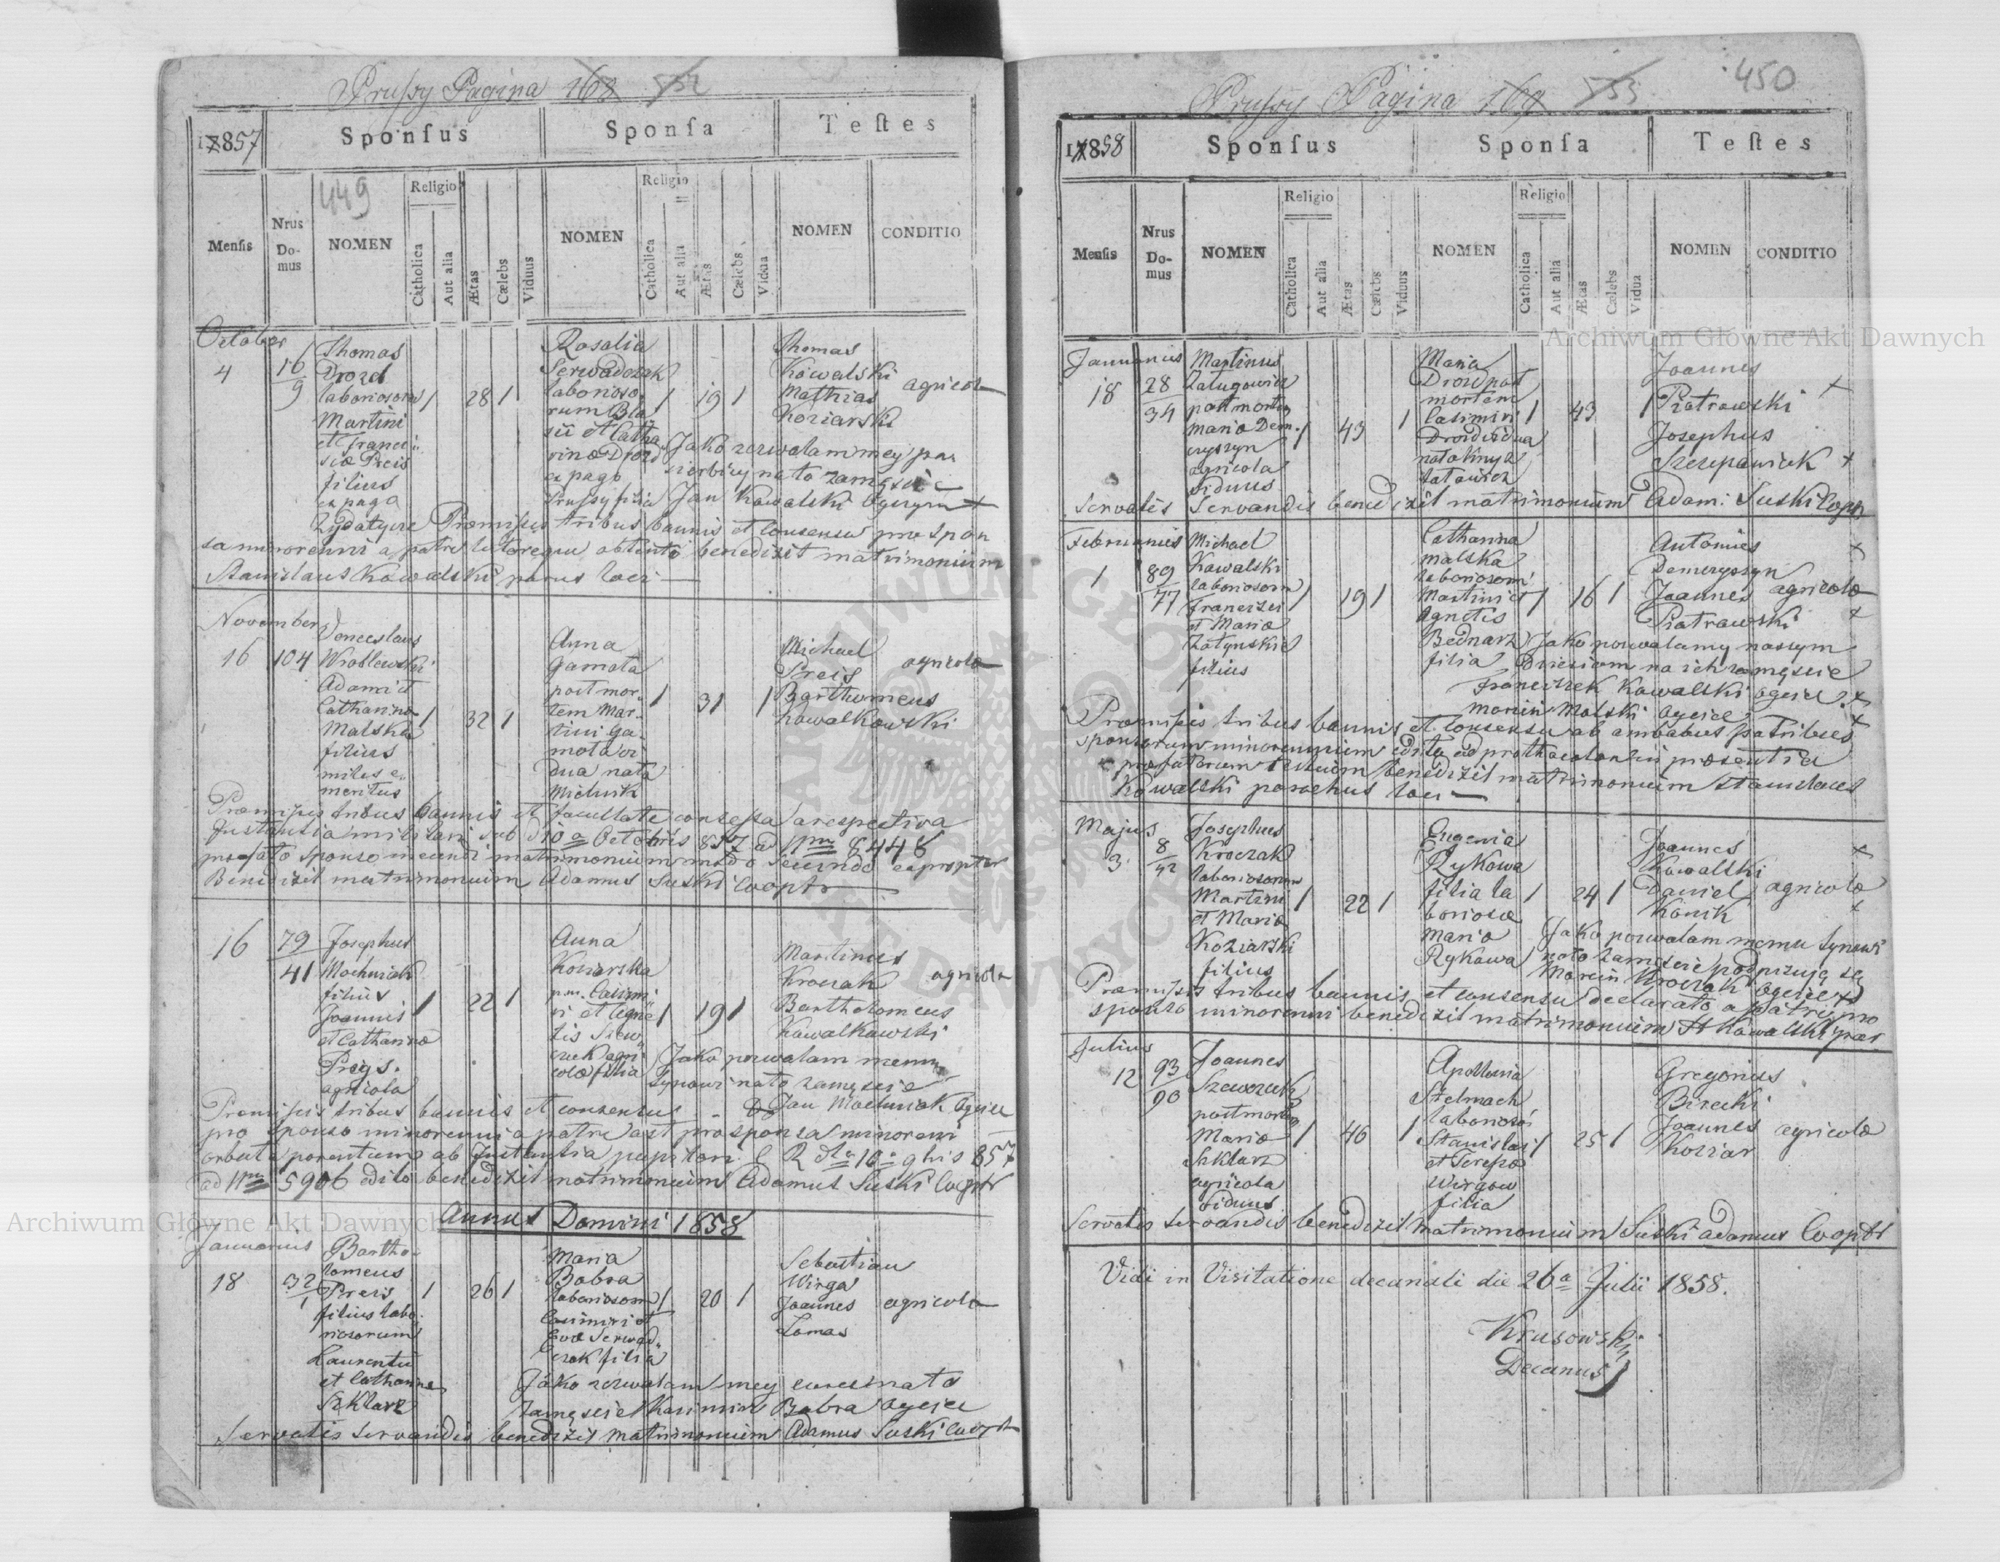 Prussy Pagina 168 552
1857
Sponsus
Sponsa
Testes
449
Mensis
Nrus Domus
NOMEN
Religio
Catholica
Aut alia
Ætas
Cælebs
Viduus
NOMEN
Religio
Catholica
Aut alia
Ætas
Cælebs
Vidua
NOMEN
CONDITIO
October
4
16
9
Thomas
Drozd
laboriosorum
Martini
et Franci
scæ Preis
filius
ex pago
1
28
1
Rosalia
Serwadczak
laborioso
rum Bla
sii et Catha
rinæ Drozd
ex pago
Prussy filia
1
19
1
Thomas
Kowalski
Mathias
Koziarski
agricolæ
Jako zezwalam mey pa
sierbicy na to zamęscie
Jan Kowalski Oyczym +
Præmissis tribus bannis et consensu pro spon
sa minorenni a patre obtento benedixit matrimonium
Stanislaus Kowalski parus loci
November
16
104
Venceslaus
Wroblewski
Adami et
Catharinæ
Malska
filius
miles e
meritus
1
32
1
Anna
Gamota
post mor
tem Mar
tini Ga
mota vi
dua nata
Michnik
1
31
1
Michael
Preis
Barthomeus
Kowalkowski
agricolæ
Præmissis tribus bannis et facultate concessa a respectiva
Instantia militari sub d 10a Octobris 857 ad Nrm 8448
præfato sponso ineundi matrimonium modo secundo
Benedixit matrimonium Adamus Suski Cooptr
16
79
41
Josephus
Machniak
filius
Joannis
et Catharinæ
Preys
agricola
1
22
1
Anna
Koziarska
p.m. Casimi
ri et Agne
tis Siew
czek agri
colæ filia
1
19
1
Martinus
Kroczak
Bartholomeus
Kawalkowski
agricolæ
Jako pozwalam memu
Synowi na to zamęscie
Jan Machniak Oyciec
Præmissis tribus bannis et consensu
pro sponso minorenni a patre ast pro sponsa minoreni
orbata parentum ab Instantia pupilari 857
ad Nrm 5906 edito benedixit matrimonium Adamus Suski Cooptr
Annus Domini 1858
Januarius
18
32
1
Bartho
lomeus
Preis
filius labo
riosorum
Laurentii
et Catharinæ
Szklarz
1
26
1
Maria
Bobra
laboriosorum
Casimiri et
Evæ Serwad
czak filia
1
20
1
Sebastian
Wirga
Joannes
Lomas
agricolæ
Jako zezwalam mey corce na to
zamęscie Kazimirz Bobra Oyciec
Servatis servandis benedixit matrimonium Adamus Suski Cooptr
Prussy Pagina 169 553
450
1858
Sponsus
Sponsa
Testes
Mensis
Nrus Domus
NOMEN
Religio
Catholica
Aut alia
Ætas
Cælebs
Viduus
NOMEN
Religio
Catholica
Aut alia
Ætas
Cælebs
Vidua
NOMEN
CONDITIO
Januarius
18
28
34
Martinus
Zalugowicz
post mortem
Mariæ Dem
czyszyn
agricola
viduus
1
43
1
Maria
Drozd post
mortem
Casimiri
Drozd vidua
nata Knysz
1
43
1
Joannes
Piotrowski +
Josephus
Szczepaniak +
Servatis Servandis benedixit matrimonium Adam: Suski Cooptr
Februarius
1
89
77
Michael
Kowalski
laboriosorum
Francisci
et Mariæ
Zatynskie
filius
1
19
1
Catharina
Malska
laboriosorum
Martini et
Agnetis
Bednarz
filia
1
16
1
Antonius +
Demczyszyn
Joannes
Piotrowski +
agricolæ
Jako pozwalamy naszym
Dzieciom na ich zamęscie
Franciszek Kowalski Oyciec +
Marcin Malski Oyciec +
Præmissis tribus bannis et consensu ab ambabus patribus
sponsorum minorennium edito ad prothocolon in præsentia
præfatorum testium benedixit matrimonium Stanislaus
Kowalski parochus loci
Majus
3
8
42
Josephus
Kroczak
laboriosorum
Martini
et Mariæ
Koziarski
filius
1
22
1
Eugenia
Rykowa
filia la
boriosæ
Maria
Rykowa
1
24
1
Joannes +
Kowalski
Daniel
Konik +
agricolæ
Jako pozwalam memu Synowi
na to zamęscie podpizuję sę
Marcin Kroczak Oyciec +
Præmissis tribus bannis et consensu declarato a patre pro
sponso minorenni benedixit matrimonium St Kowalski par
Julius
12
93
90
Joannes
Szewczuk
post mortem
Mariæ
Szklarz
agricola
Viduus
1
46
1
Apollonia
Stelmach
laboriosor
Stanislai
et Teresæ
Wirgow
filia
1
25
1
Gregorius
Birecki
Joannes
Koziar
agricolæ
Servatis servandis benedixit matrimonium Suski Adamus Cooptr
Vidi in Visitatione decanali die 26a Julii 1858.
Krusowski
Decanus
Archiwum Główne Akt Dawnych
Archiwum Główne Akt Dawnych
ARCHIWUM GŁÓWNE AKT DAWNYCH